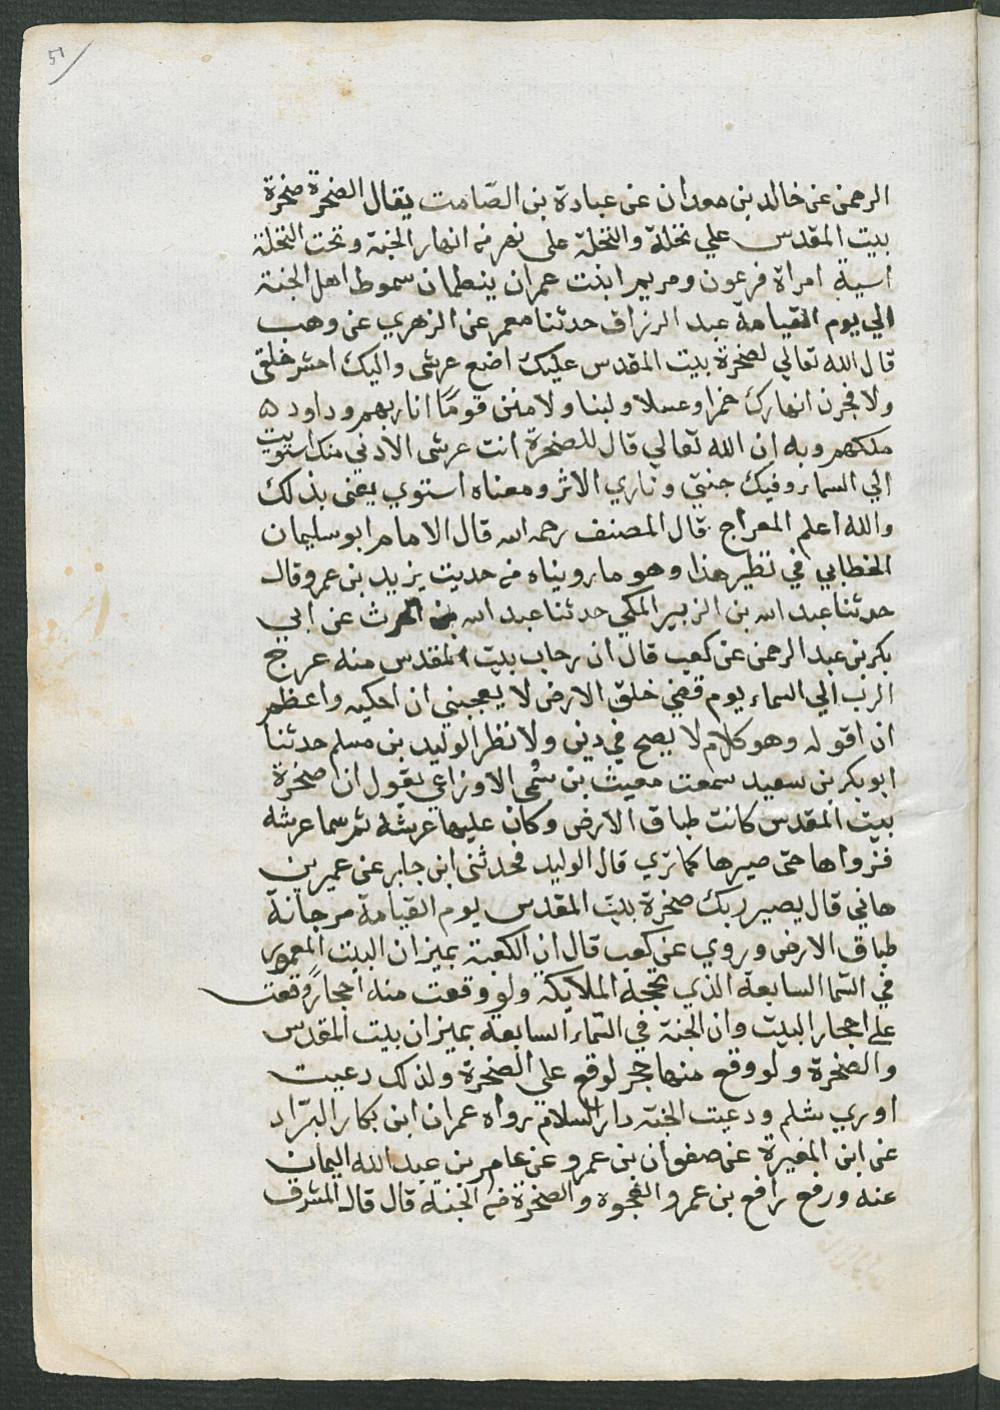 51
الرحمن عن خالد بن معدان عن عبادة بن الصّامت يقال الصخرة صخرة
بيت المقدس علي نخلة والنخلة على نهر من انهار الجنة وتحت النخلة
اسية امراة فرعون ومريم ابنت عمران ينظمان سموط اهل الجنة
الي يوم القيامة عبد الرزاق حدثنا معمر عن الزهري عن وهب
قال الله تعالي لصخرة بيت المقدس عليك اضع عرشي واليك احشر خلقي
ولافجرن انهارك خمرا وعسلا ولبنا ولامنن قومًا انا ربهم وداود ٥
ملكهم وبه ان الله تعالي قال للصخرة انت عرشي الادني منك استويت
الي السماء وفيك جنتي وناري الاثر ومعناه استوي يعني بذلك
والله اعلم المعراج قال المصنف رحمه الله قال الامام ابو سليمان
الخطابي في نظير هذا وهو ما رويناه من حديث يزيد بن عمرو قال
حدثنا عبد الله بن الزبير المكي حدثنا عبد الله بن الحرث عن ابي
بكر بن عبد الرحمن عن كعب قال ان رحاب بيت المقدس منه عرج
الرب الي السماء يوم قضي خلق الارض لا يعجبني ان احكيه واعظم
ان اقوله وهو كلام لا يصح في دين ولا نظر الوليد بن مسلم حدثنا
ابو بكر بن سعيد سمعت مغيث بن سُمي الاوزاعي يقول ان صخرة
بيت المقدس كانت طباق الارض وكان عليها عرشه ثم سما عرشه
فزواها حتى صيرها كما تري قال الوليد فحدثني ابن جابر عن عمير بن
هاني قال يصير ربك صخرة بيت المقدس يوم القيامة مرجانة
طباق الارض وروي عن كعب قال ان الكعبة بميزان البيت المعمور
في السما السابعة الذي تحجه الملايكه ولو وقعت منه احجارً وقعت
علي احجار البيت وان الجنة في السماء السابعة بميزان بيت المقدس
والصخرة ولو وقع منها حجر لوقع على الصخرة ولذلك دعيت
اوري شلم ودعيت الجنة دار السلام رواه عمران ابن بكار البرّاد
عن ابن المغيرة عن صفوان بن عمرو عن عامر بن عبد الله اليمان
عنه ورفع رافع بن عمرو العجوه والصخرة من الجنة قال قال المشرف